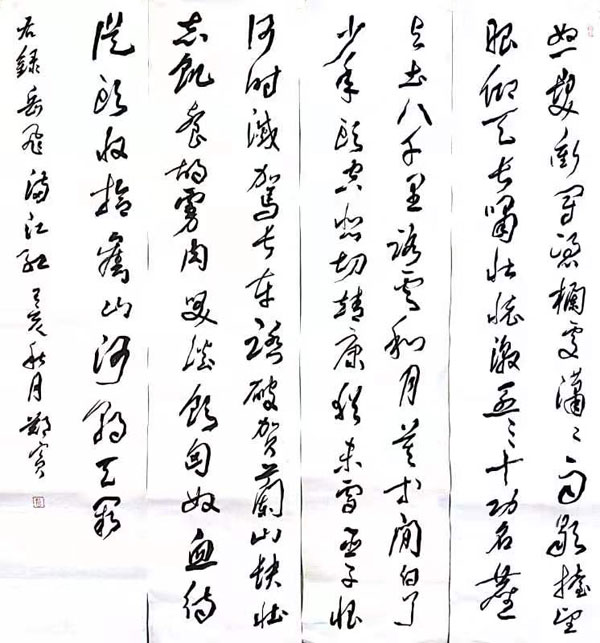 怒髮衝冠憑欄處瀟々雨歇擡望
眼仰天長嘯壯懷激烈三十功名塵
與土八千里路雲和月莫等閒白了
少年頭空悲切靖康猶未雪臣子恨
何時滅駕長車踏破賀蘭山缺壯
志飢餐胡虜肉笑談飲匈奴血待
從頭收拾舊山河朝天闕
右錄岳飛滿江紅己亥秋月鄭賓